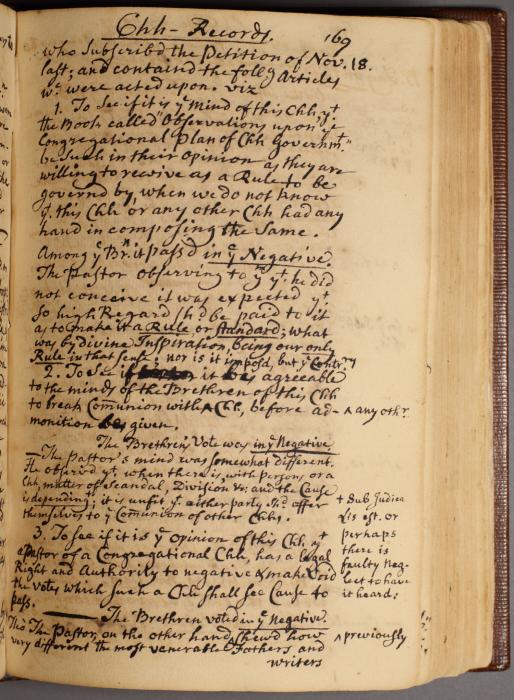 Chh - Records.
169
who Subscrib'd the Petition of Nov. 18.
last; and contain'd the foll.g Articles
wc. were acted upon. viz
1. To see if it is ye mind of this Chh, yt
the Book called Observations upon ye
Congregational Plan of Chh Governmt
be Such in their opinion as they are
willing to receive as a Rule to be
govern'd by, when we do not know
yt. this Chh or any other Chh had any
hand in composing the Same.
Among ye Brn. it pass'd in ye Negative.
The Pastor observing to ym yt. he did
not conceive it was expected yt
so high Regard sh'd be paid to it
as to make it a Rule or standard; what
was by divine Inspiration, being our only
Rule in that sense; nor is it impos'd, but ye Contrry
2. To see if it be agreeable
to the minds of the Brethren of this Chh
to break Com̃union with ^ Chh, before ad- ^ any othr.
monition be given.
The Brethren's Vote was in ye Negative.
The Pastor's mind was somewhat different.
He observ'd yt. when there is, with Persons or a
Chh, matter of Scandal, Division &c; and the Cause
is depending; it is unfit yt. either party shd. offer
themselves to ye Com̃union of other Chhs.
+ Sub Judice
lis est. or
perhaps
there is
faulty Neg-
lect to have
it heard:
3. To see if it is ye opinion of this Chh, yt
a Pastor of a Congregational Chh, has a legal
Right and Authority to negative & make Void
the votes which such a Chh shall see Cause to
pass.
The Brethren voted in ye Negative.
Tho' The Pastor, on the other hand, ^ shew'd how
^ previously
very different the most venerable Fathers and
writers